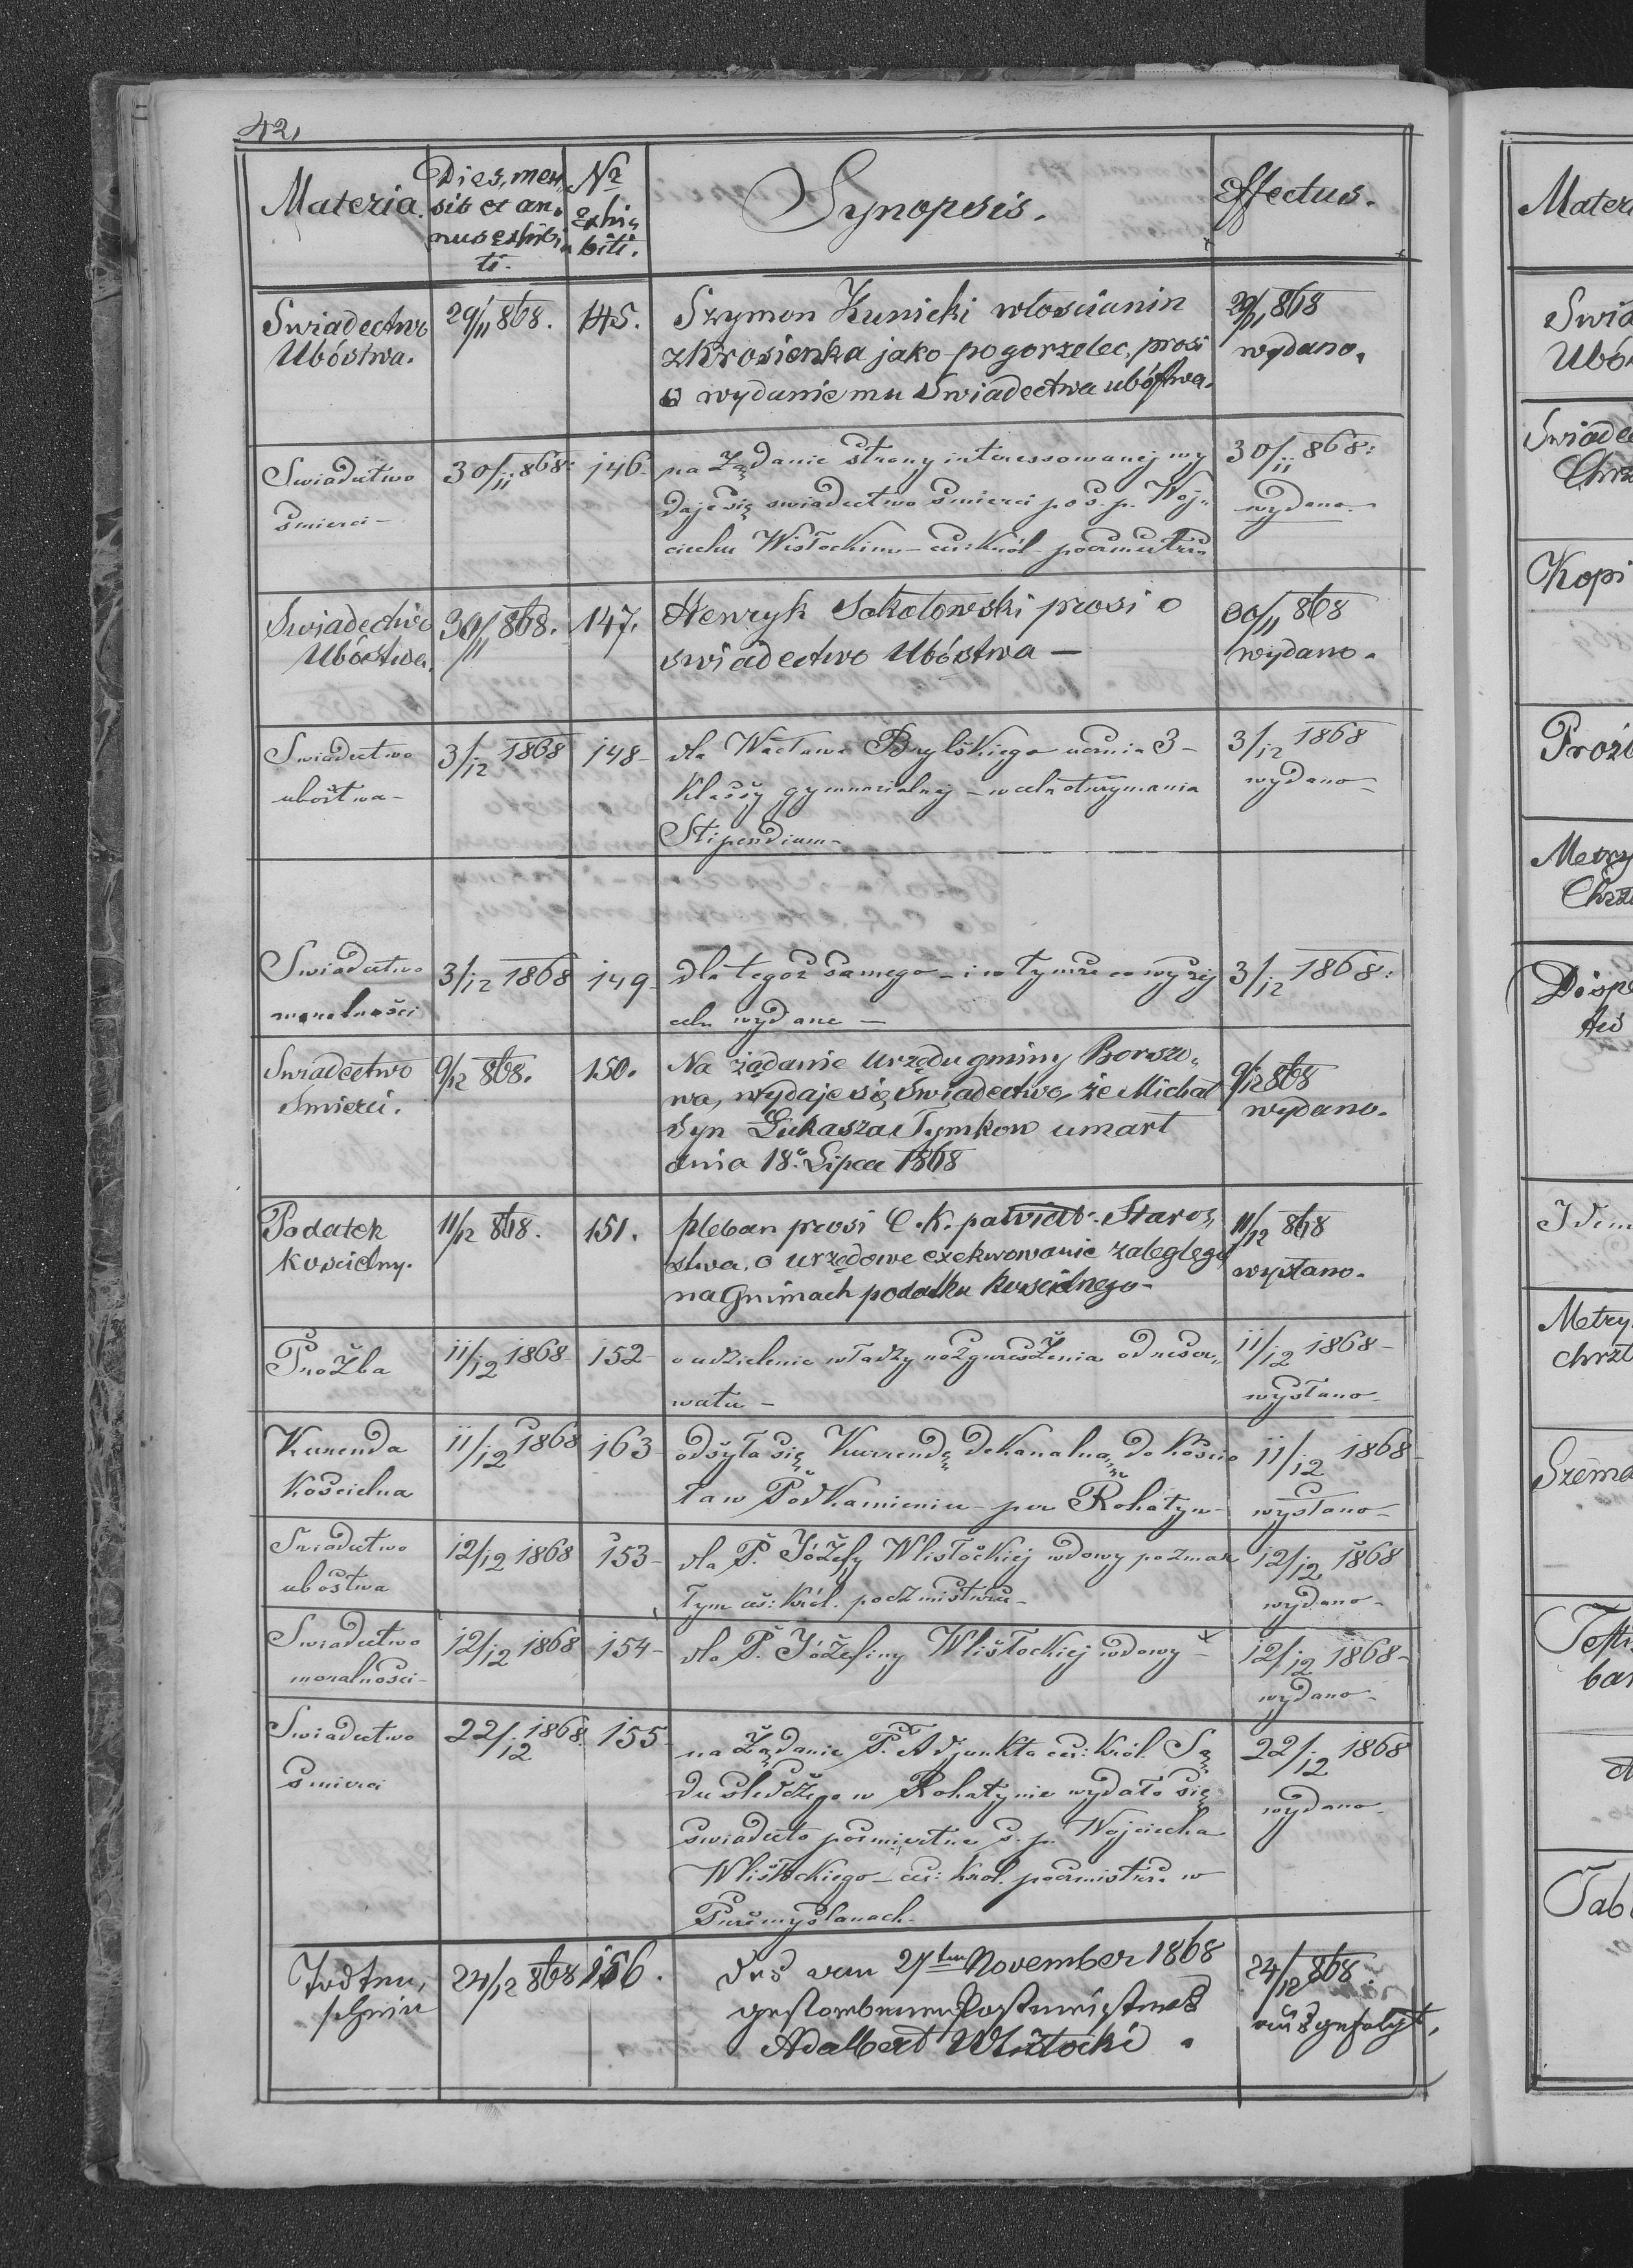 42,
Materia.
Dies, men,
sis et an,
nus exhibi,
ti.
Nr
Exhi,
biti.
Synopsis.
Effectus.
Swiadectwo
Ubóstwa.
29/11 868.
145.
Szymon Kunicki włoscianin
z Krosienka jako pogorzelec, prosi
o wydanie mu Swiadectwa ubóstwa.
29/11 868
wydano.
Swiadectwo
śmierci -
30/11 868:
146-
na Żądanie Strony interessowanej wy
daje się swiadectwo śmierci po ś. p. Woj„
ciechu Wisłockim - ces: Król - pocmistrzu
30/11 868:
wydano.
Swiadectwo
Ubóstwa.
30/11 868.
147.
Henryk Sokołowski prosi o
swiadectwo Ubóstwa —
30/11 868
wydano.
Swiadectwo
ubóstwa -
3/12 1868
148-
dla Wacława Brylśkiego ucznia 3 -
Klassy gymnazialnej - w celu otrzymania
Stipendium -
3/12 1868
wydano -
Swiadectwo
moralności
3/12 1868
149-
dla tegoż samego - i w tymże co wyżej
celu wydane —
3/12 1868:
Swiadectwo
Smierci.
9/12 868.
150.
Na żądanie Urzędu gminy Borszo„
wa, wydaje się Swiadectwo, że Michał
Syn Łukasza Tymkow umarł
dnia 18º. Lipca 1868
9/12 868
wydano.
Podatek
Koscielny.
11/12 868.
151.
pleban prosi C. K. powiat. Staros„
stwa, o urzędowe exekwowanie zaległego
na Gminach podatku koscielnego -
11/12 868
wysłano.
Prożba
11/12 1868-
152-
o udzielenie władzy rożgrzeszenia od reser„
watu -
11/12 1868-
wysłano -
Kurenda
Kościelna
11/12 1868
163-
odsyła się Kurrendę deKanalną do Kościo
ła w PodKamieniu - per Rohatyn -
11/12 1868
wysłano -
Swiadectwo
ubostwa
12/12 1868
153-
dla P. Józefy Wlisłockiej wdowy po zmar
łym ces: Król. pocz mistrzu -
12/12 1868
wydano -
Swiadectwo
moralności -
12/12 1868
154-
dla P. Józefiny Wlisłockiej wdowy -
12/12 1868-
wydano -
Swiadectwo
śmierci
22/12 1868.
155-
na Żądanie P. Adjunkta ces: Król. Są
du śledczego w Rohatynie wydało się
swiadecto pośmiertne ś. p. Wojciecha
Wlisłockiego - ces: Król. pocmistrza w
Przemyślanach -
22/12 1868
wydano -
Todten,
schein
24/12 868
156.
des am 27ten November 1868
gestorbenen Postmeisters
Adalbert Wlisłocki.
24/12 868.
ausgefolgt.
Swia
Chrz
Kopi
1869
Metry
Chrzt
Metry
chrzt